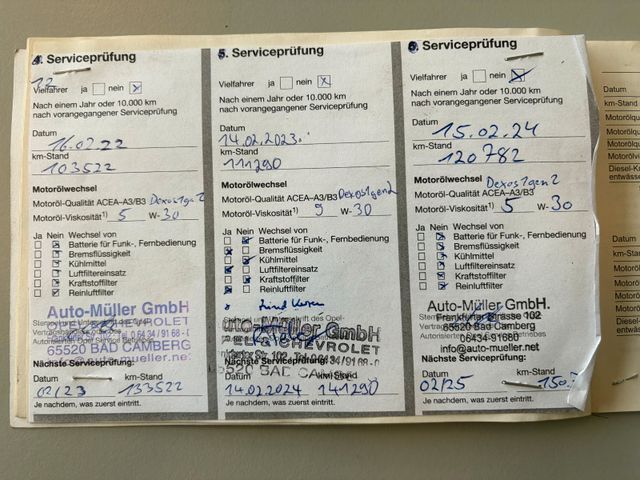 4. Serviceprüfung
Vielfahrer ja nein x
Nach einem Jahr oder 10.000 km
nach vorangegangener Serviceprüfung
Datum
16.02.22
km-Stand
103522
Motorölwechsel
Motoröl-Qualität ACEA-A3/B3 Dexos 1 gen 2
Motoröl-Viskosität¹) 5 W-30
Ja Nein Wechsel von
Batterie für Funk-, Fernbedienung
Bremsflüssigkeit
Kühlmittel
Luftfiltereinsatz
Kraftstoffilter
Reinluftfilter
Auto-Müller GmbH
65520 BAD CAMBERG
Nächste Serviceprüfung:
Datum km-Stand
02/23 133522
Je nachdem, was zuerst eintritt.
5. Serviceprüfung
Vielfahrer ja nein x
Nach einem Jahr oder 10.000 km
nach vorangegangener Serviceprüfung
Datum
14.02.2023
km-Stand
111290
Motorölwechsel
Motoröl-Qualität ACEA-A3/B3 Dexos 1 gen 2
Motoröl-Viskosität¹) W-30
Ja Nein Wechsel von
Batterie für Funk-, Fernbedienung
Bremsflüssigkeit
Kühlmittel
Luftfiltereinsatz
Kraftstoffilter
Reinluftfilter
Müller GmbH
CHEVROLET
Nächste Serviceprüfung:
Datum km-Stand
14.02.2024 141290
Je nachdem, was zuerst eintritt.
6. Serviceprüfung
Vielfahrer ja nein x
Nach einem Jahr oder 10.000 km
nach vorangegangener Serviceprüfung
Datum
15.02.24
km-Stand
120782
Motorölwechsel Dexos 1 gen 2
Motoröl-Qualität ACEA-A3/B3
Motoröl-Viskosität¹) 5 W-30
Ja Nein Wechsel von
Batterie für Funk-, Fernbedienung
Bremsflüssigkeit
Kühlmittel
Luftfiltereinsatz
Kraftstoffilter
Reinluftfilter
Auto-Müller GmbH.
Frankfurter Strasse 102
65520 Bad Camberg
06434-91680
info@auto-mueller.net
Nächste Serviceprüfung:
Datum km-Stand
02/25 150
Je nachdem, was zuerst eintritt.
Datum
km-Stand